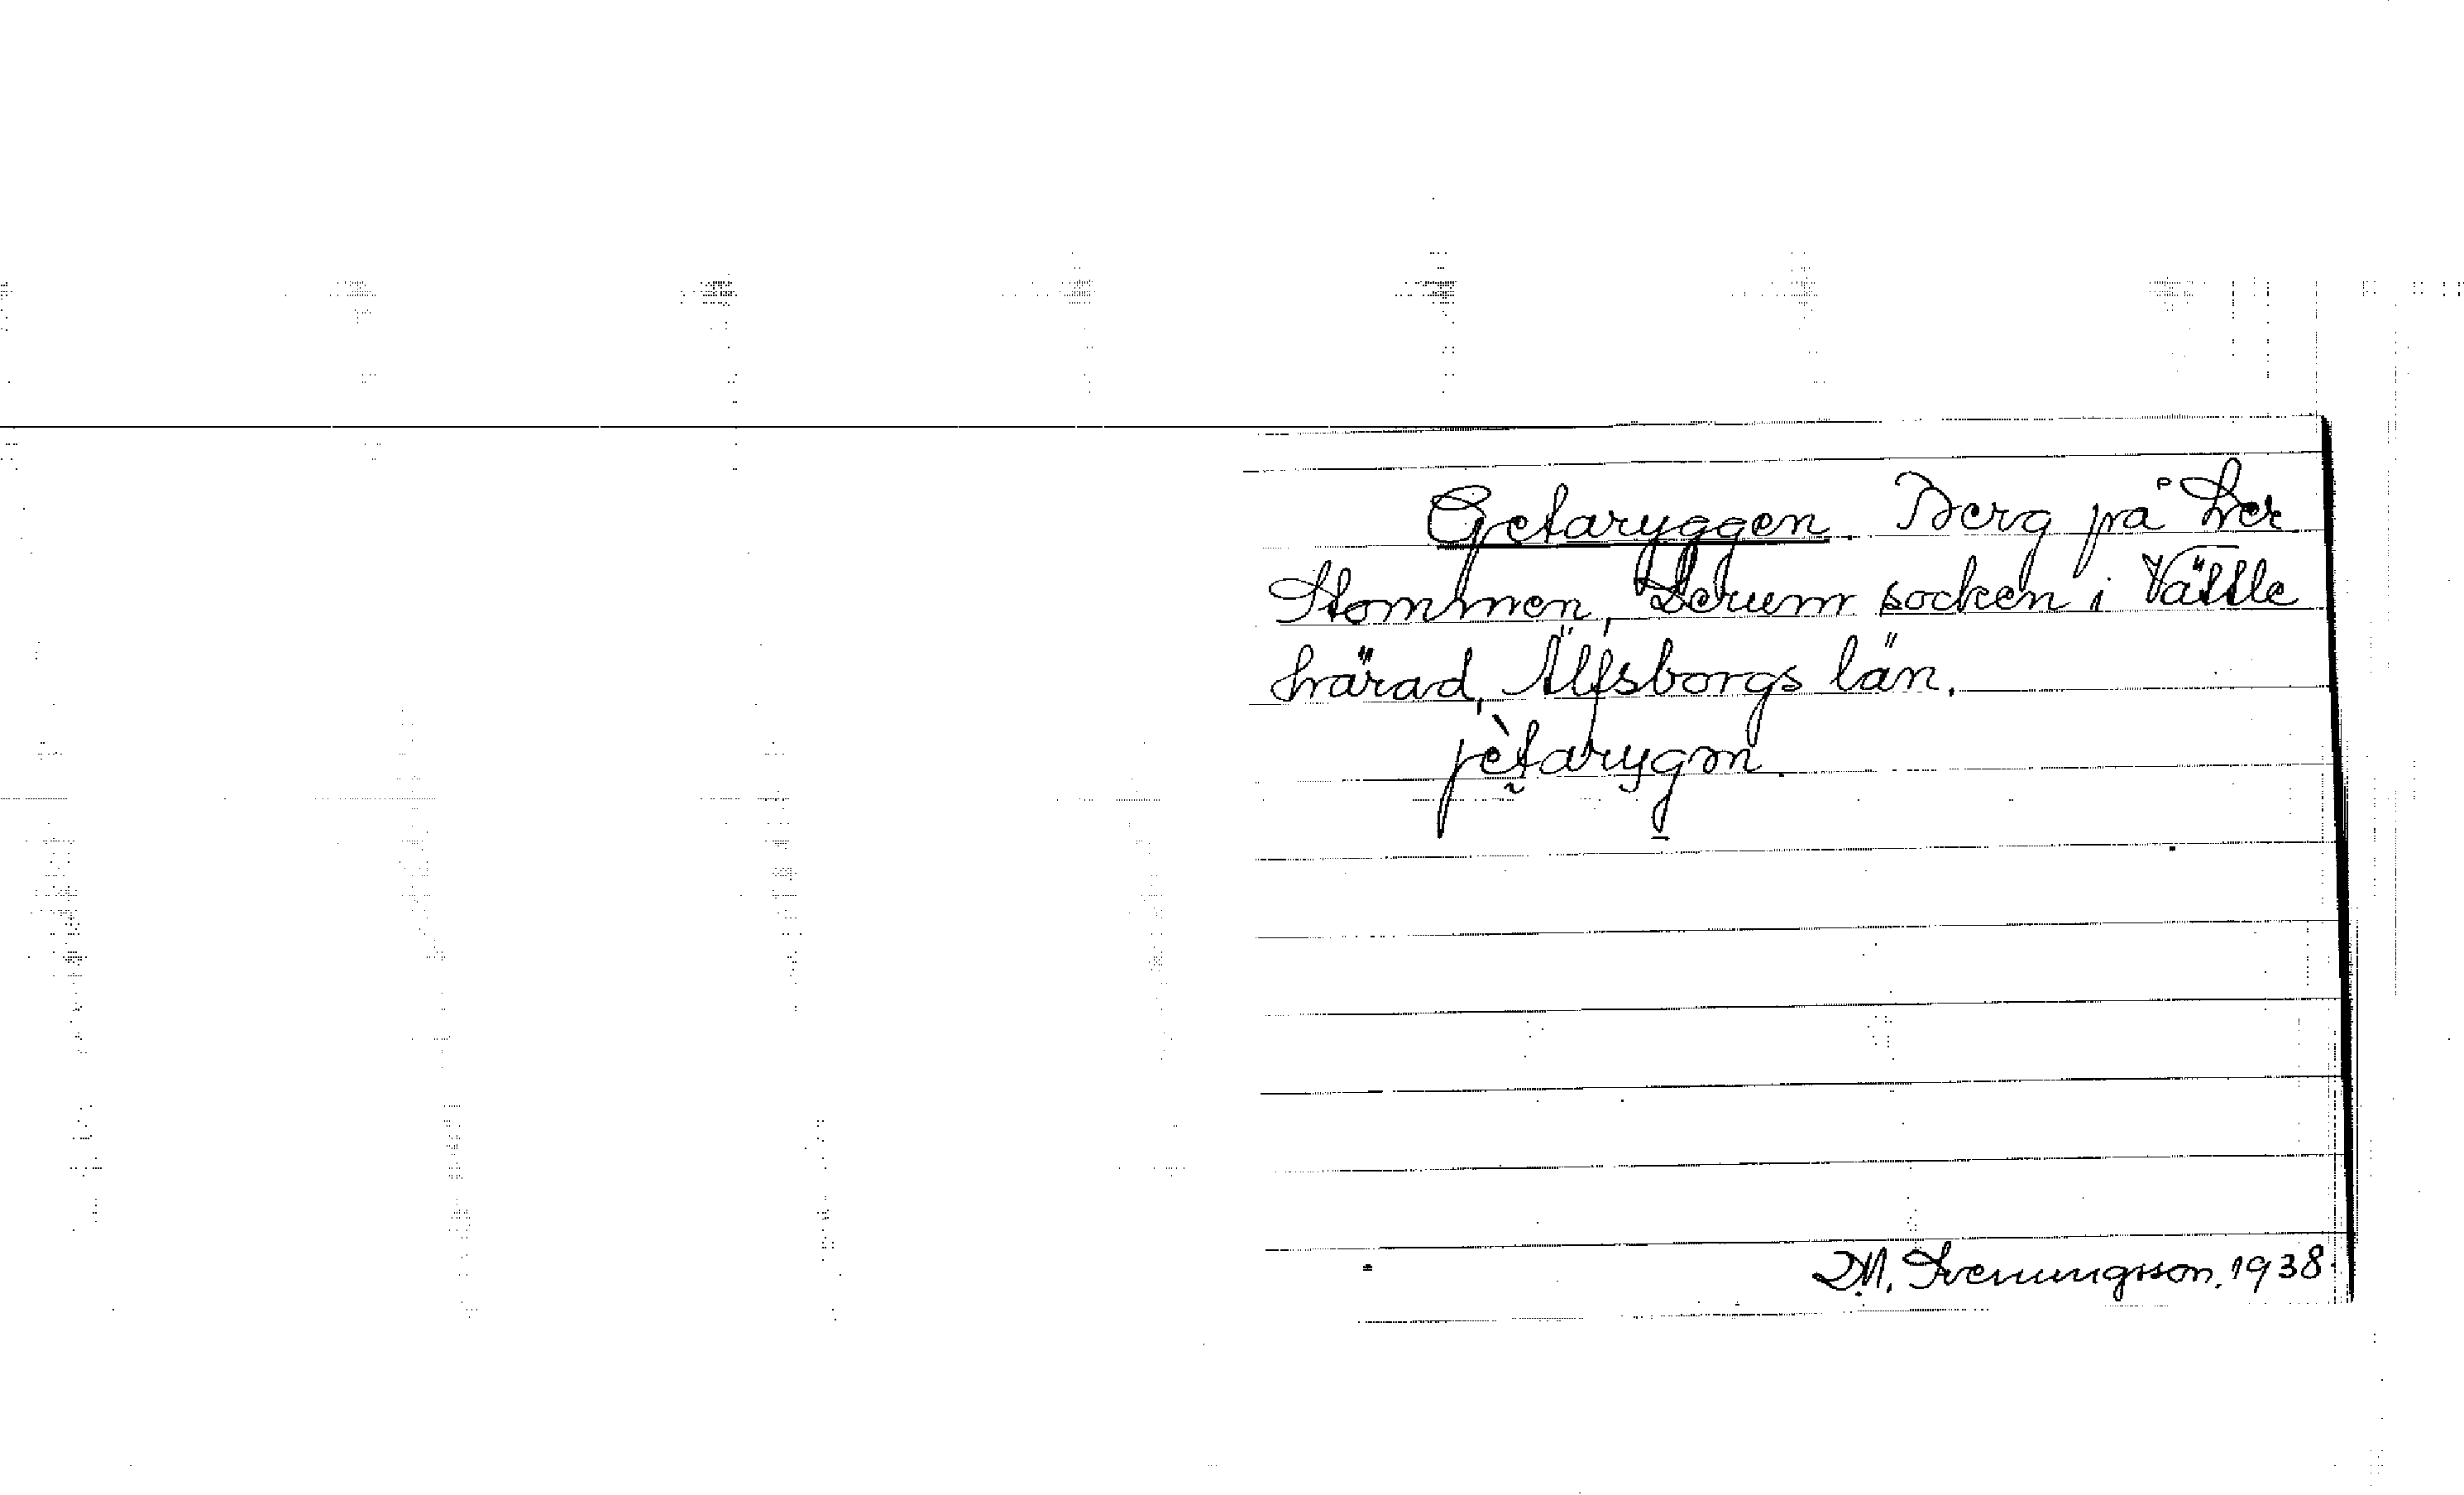 Getaryggen. Berg på Ler
Stommen, Lerum socken i Vättle
härad, Älfsborgs län.
jètarygɷn.
D.M. Svenungsson. 1938.